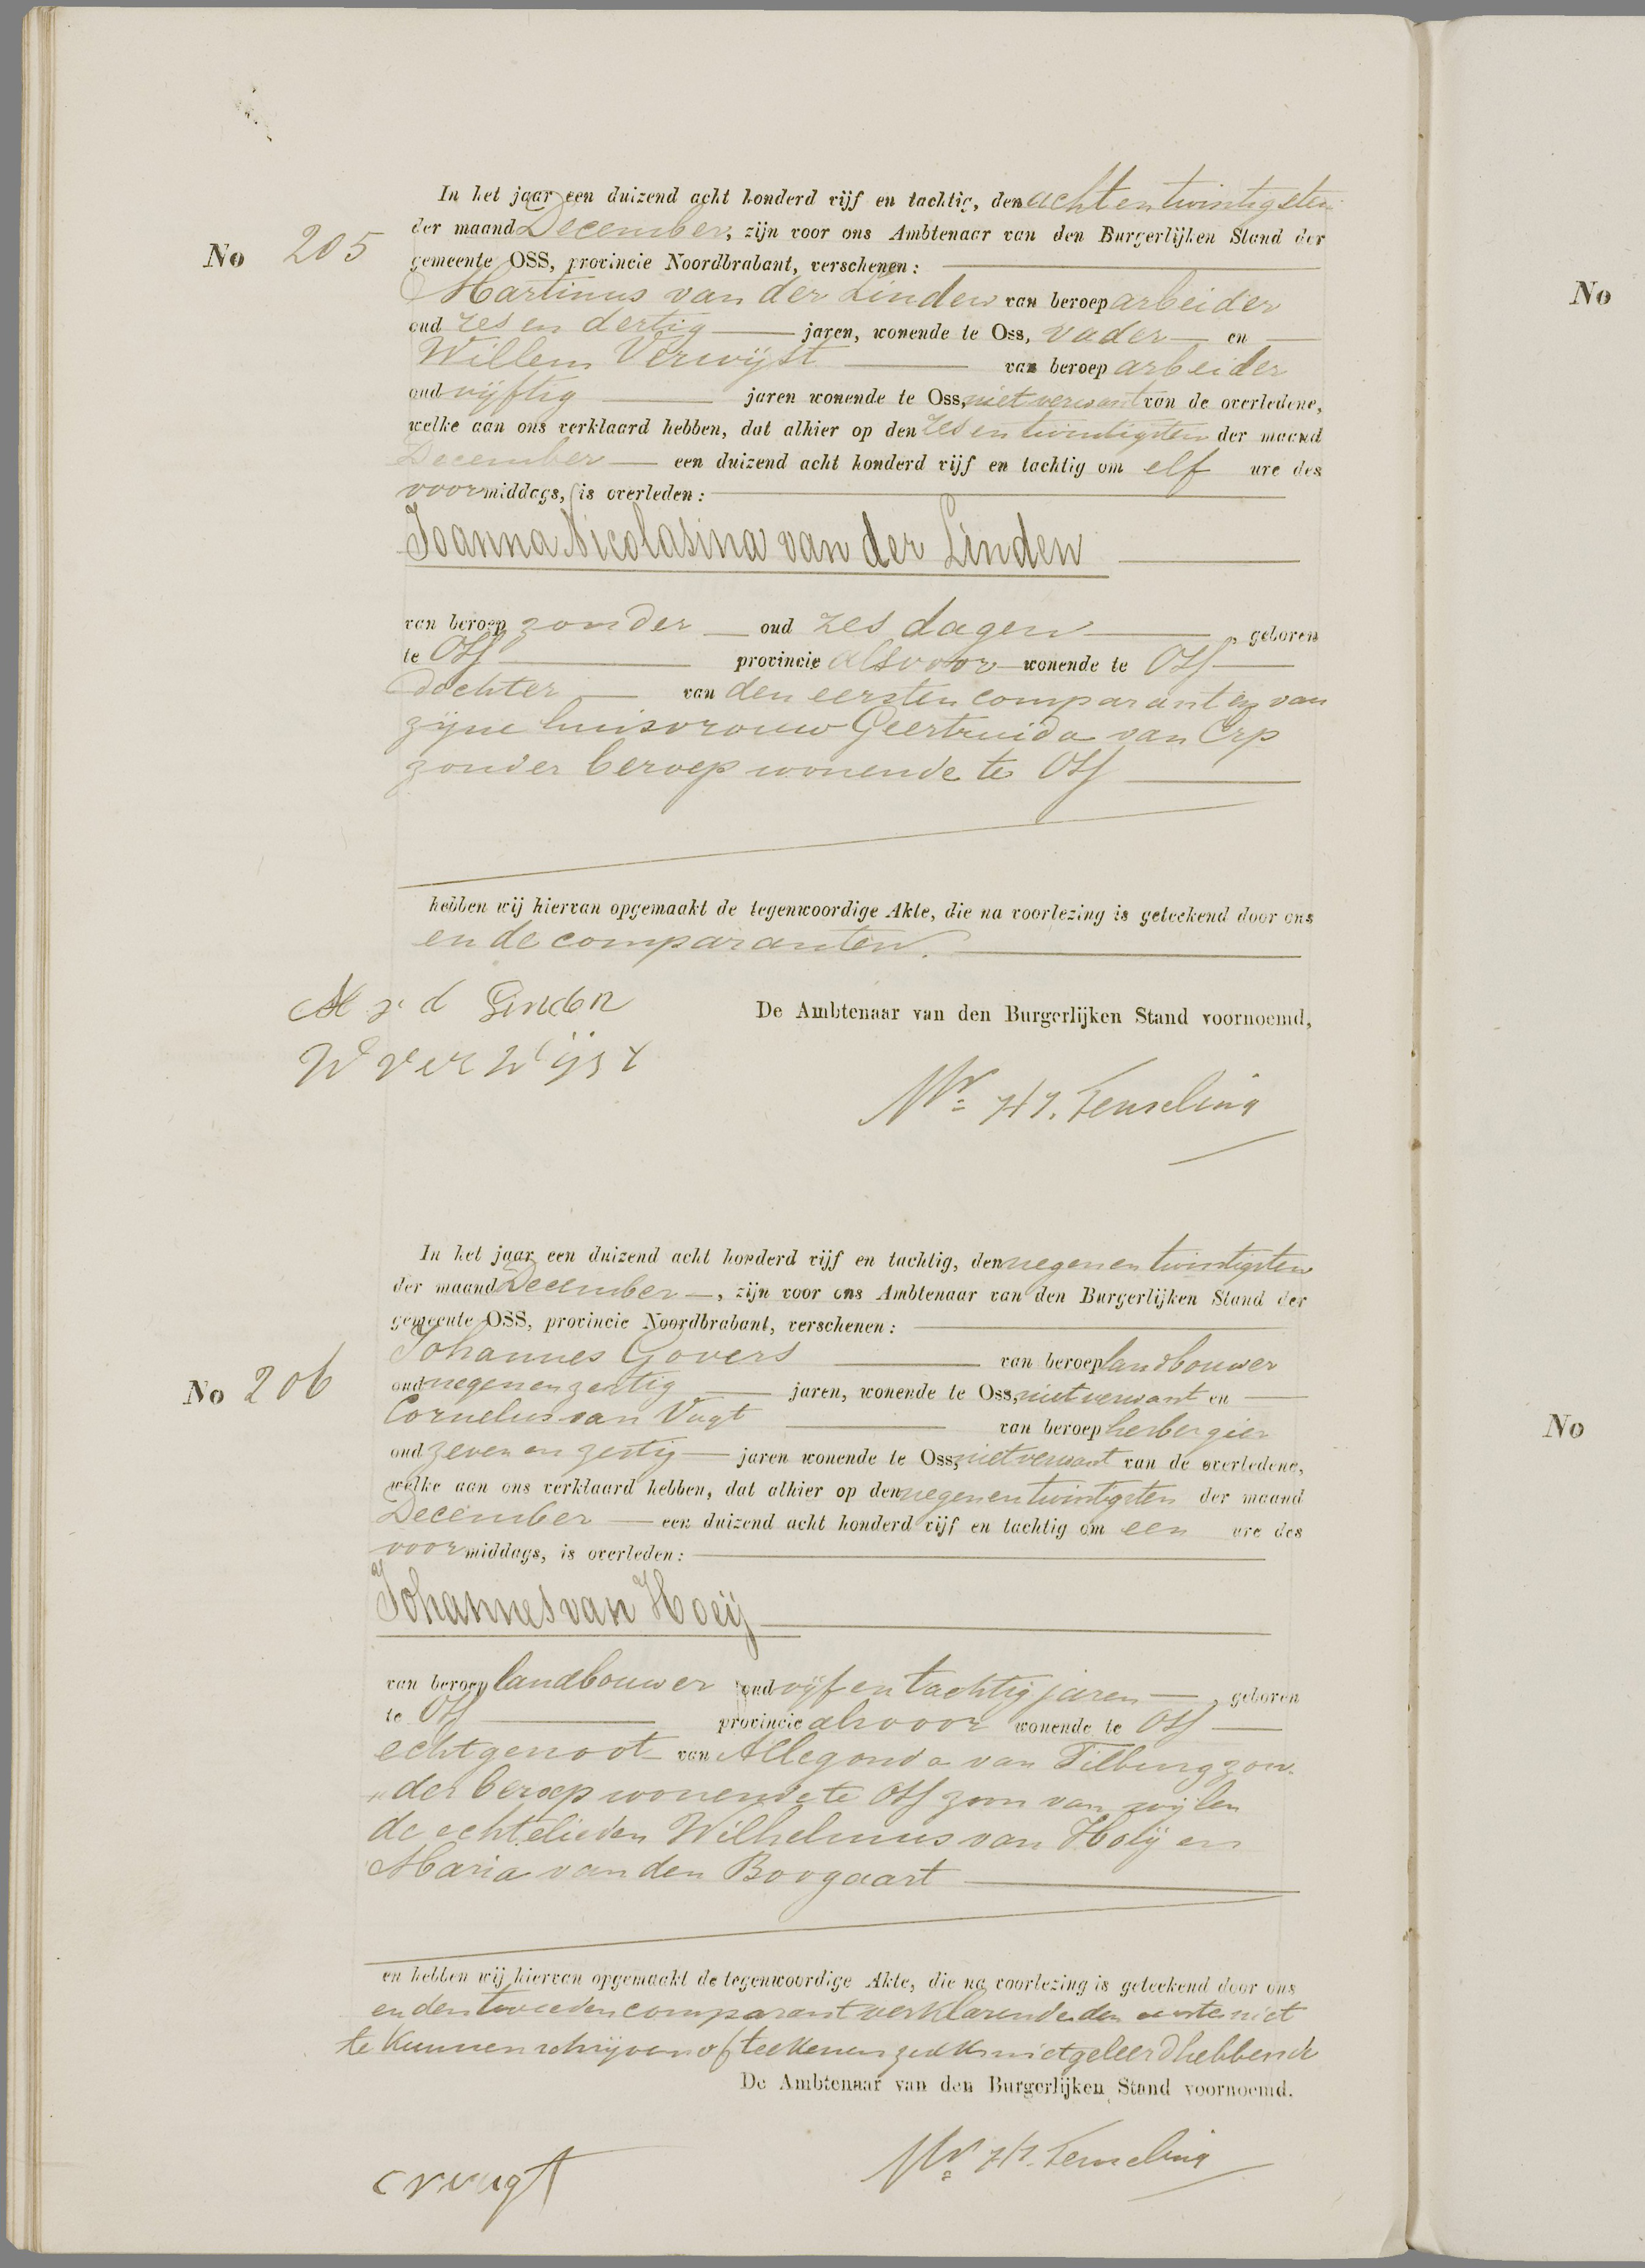 In het jaar een duizend acht honderd vijf en tachtig, den achtentwintigsten
der maand December, zijn voor ons Ambtenaar van den Burgerlijken Stand der
No 205
gemeente OSS, provincie Noordbrabant, verschenen:
Martinus van der Linden van beroep arbeider
oud zes en dertig jaren, wonende te Oss, vader en
Willem Verwijst van beroep arbeider
oud vijftig jaren wonende te Oss, niet verwant van de overledene,
welke aan ons verklaard hebben, dat alhier op den zes en twintigsten der maand
December een duizend acht honderd vijf en tachtig om elf ure des
voormiddags, is overleden:
Joanna Nicolasina van der Linden
van beroep zonder oud zes dagen, geboren
te Oss provincie alsvoor wonende te Oss
dochter van den eersten comparant en van
zijne huisvrouw Geertruida van Erp
zonder beroep wonende te Oss
hebben wij hiervan opgemaakt de tegenwoordige Akte, die na voorlezing is geteekend door ons
en de comparanten.
M v d Linden
De Ambtenaar van den Burgerlijken Stand voornoemd,
W Verwijst
Mr
In het jaar een duizend acht honderd vijf en tachtig, den negenentwintigsten
der maand December, zijn voor ons Ambtenaar van den Burgerlijken Stand der
gemeente OSS, provincie Noordbrabant, verschenen:
Johannes Govers van beroep landbouwer
No 206
oud negenenzestig jaren, wonende te Oss, niet verwant en
Cornelus van Vugt van beroep herbergier
oud zeven en zestig jaren wonende te Oss, niet verwant van de overledene,
welke aan ons verklaard hebben, dat alhier op den negenentwintigsten der maand
December een duizend acht honderd vijf en tachtig om een ure des
voormiddags, is overleden:
Johannes van Hoeij
van beroep landbouwer oud vijf en tachtig jaren, geboren
te Oss provincie alsvoor wonende te Oss
echtgenoot van Allegonda van Tilburg zon-
"der beroep wonende te Oss zoon van wijlen
de echtelieden Wilhelmus van Hoeij en
Maria van den Boogaart
en hebben wij hiervan opgemaakt de tegenwoordige Akte, die na voorlezing is geteekend door ons
en den tweeden comparant verklarende den eerste niet
te kunnen schrijven of teekenen zulks niet geleerd hebbende
De Ambtenaar van den Burgerlijken Stand voornoemd.
Mr
C v vugt
No
No